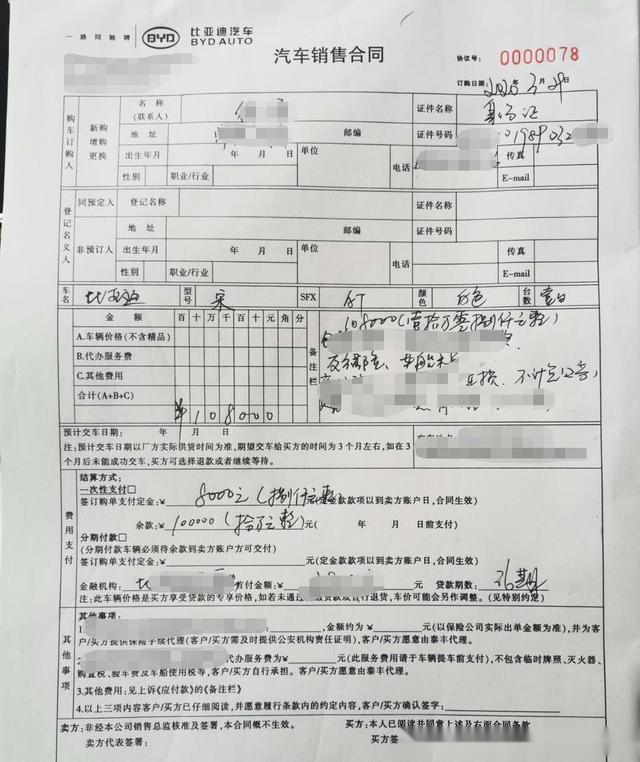 一路同驰骋 BYD 比亚迪汽车 BYD AUTO
汽车销售合同
协议号： 0000078
订购日期： 年 月 日
购车订购人 新购 增购 更换
名称 (联系人) 证件名称 身份证
地址 邮编 证件号码
出生年月 年 月 日 单位 电话 传真
性别 职业/行业 E-mail
登记名义人 同预定人 非预订人
登记名称 证件名称
地址 邮编 证件号码
出生年月 年 月 日 单位 电话 传真
性别 职业/行业 E-mail
车名 比亚迪 型号 宋 SFX 颜色 白色 台数 壹台
金额 百 十 万 千 百 十 元 角 分 备注栏
108000(壹拾万零捌仟元整)
A.车辆价格(不含精品)
B.代办服务费
C.其他费用
合计(A+B+C) ¥108000
预计交车日期 年 月 日
预计交车日期以厂方实际供货时间为准,期望交车给买方的时间为3个月左右,如在3
个月后未能成功交车,买方可选择退款或者继续等待。
费用支付
结算方式:
一次性支付□
签订购单支付定金:¥ 8000元(捌仟元整) (定金款款项以到卖方账户日,合同生效)
余款:¥100000(拾万元整)元( 年 月 日前支付)
分期付款□
(分期付款车辆必须待余款到卖方账户方可交付)
签订购单支付定金:¥ 元(定金款款项以到卖方账户日,合同生效)
金融机构: 首付金额:¥ 元 贷款期数:
注:此车辆价格是买方享受贷款的专享价格,如若未通过 贷款或自行退货,车价可能会另作调整。(见特别约定)
其他事项
其他事项:
1. 金额约为¥ 元(以保险公司实际出单金额为准),并为客
户/买方提供保险手续代理(客户/买方需及时提供公安机构责任证明),客户/买方愿意由泰丰代理。
2. 代办服务费为¥ 元(此服务费用请于车辆提车前支付),不包含临时牌照、灭火器、
购置税、验车费及车船使用税等,客户/买方自行承担。客户/买方愿意由泰丰代理。
3.其他费用;见上诉《应付款》的《备注栏》
4.以上三项内容客户/买方已仔细阅读,并愿意履行条款内的约定内容,客户/买方确认签字:
卖方:非经本公司销售总监核准及签署,本合同概不生效。 买方:本人已阅读并同意上述及右面合同条款
卖方代表签署: 买方签